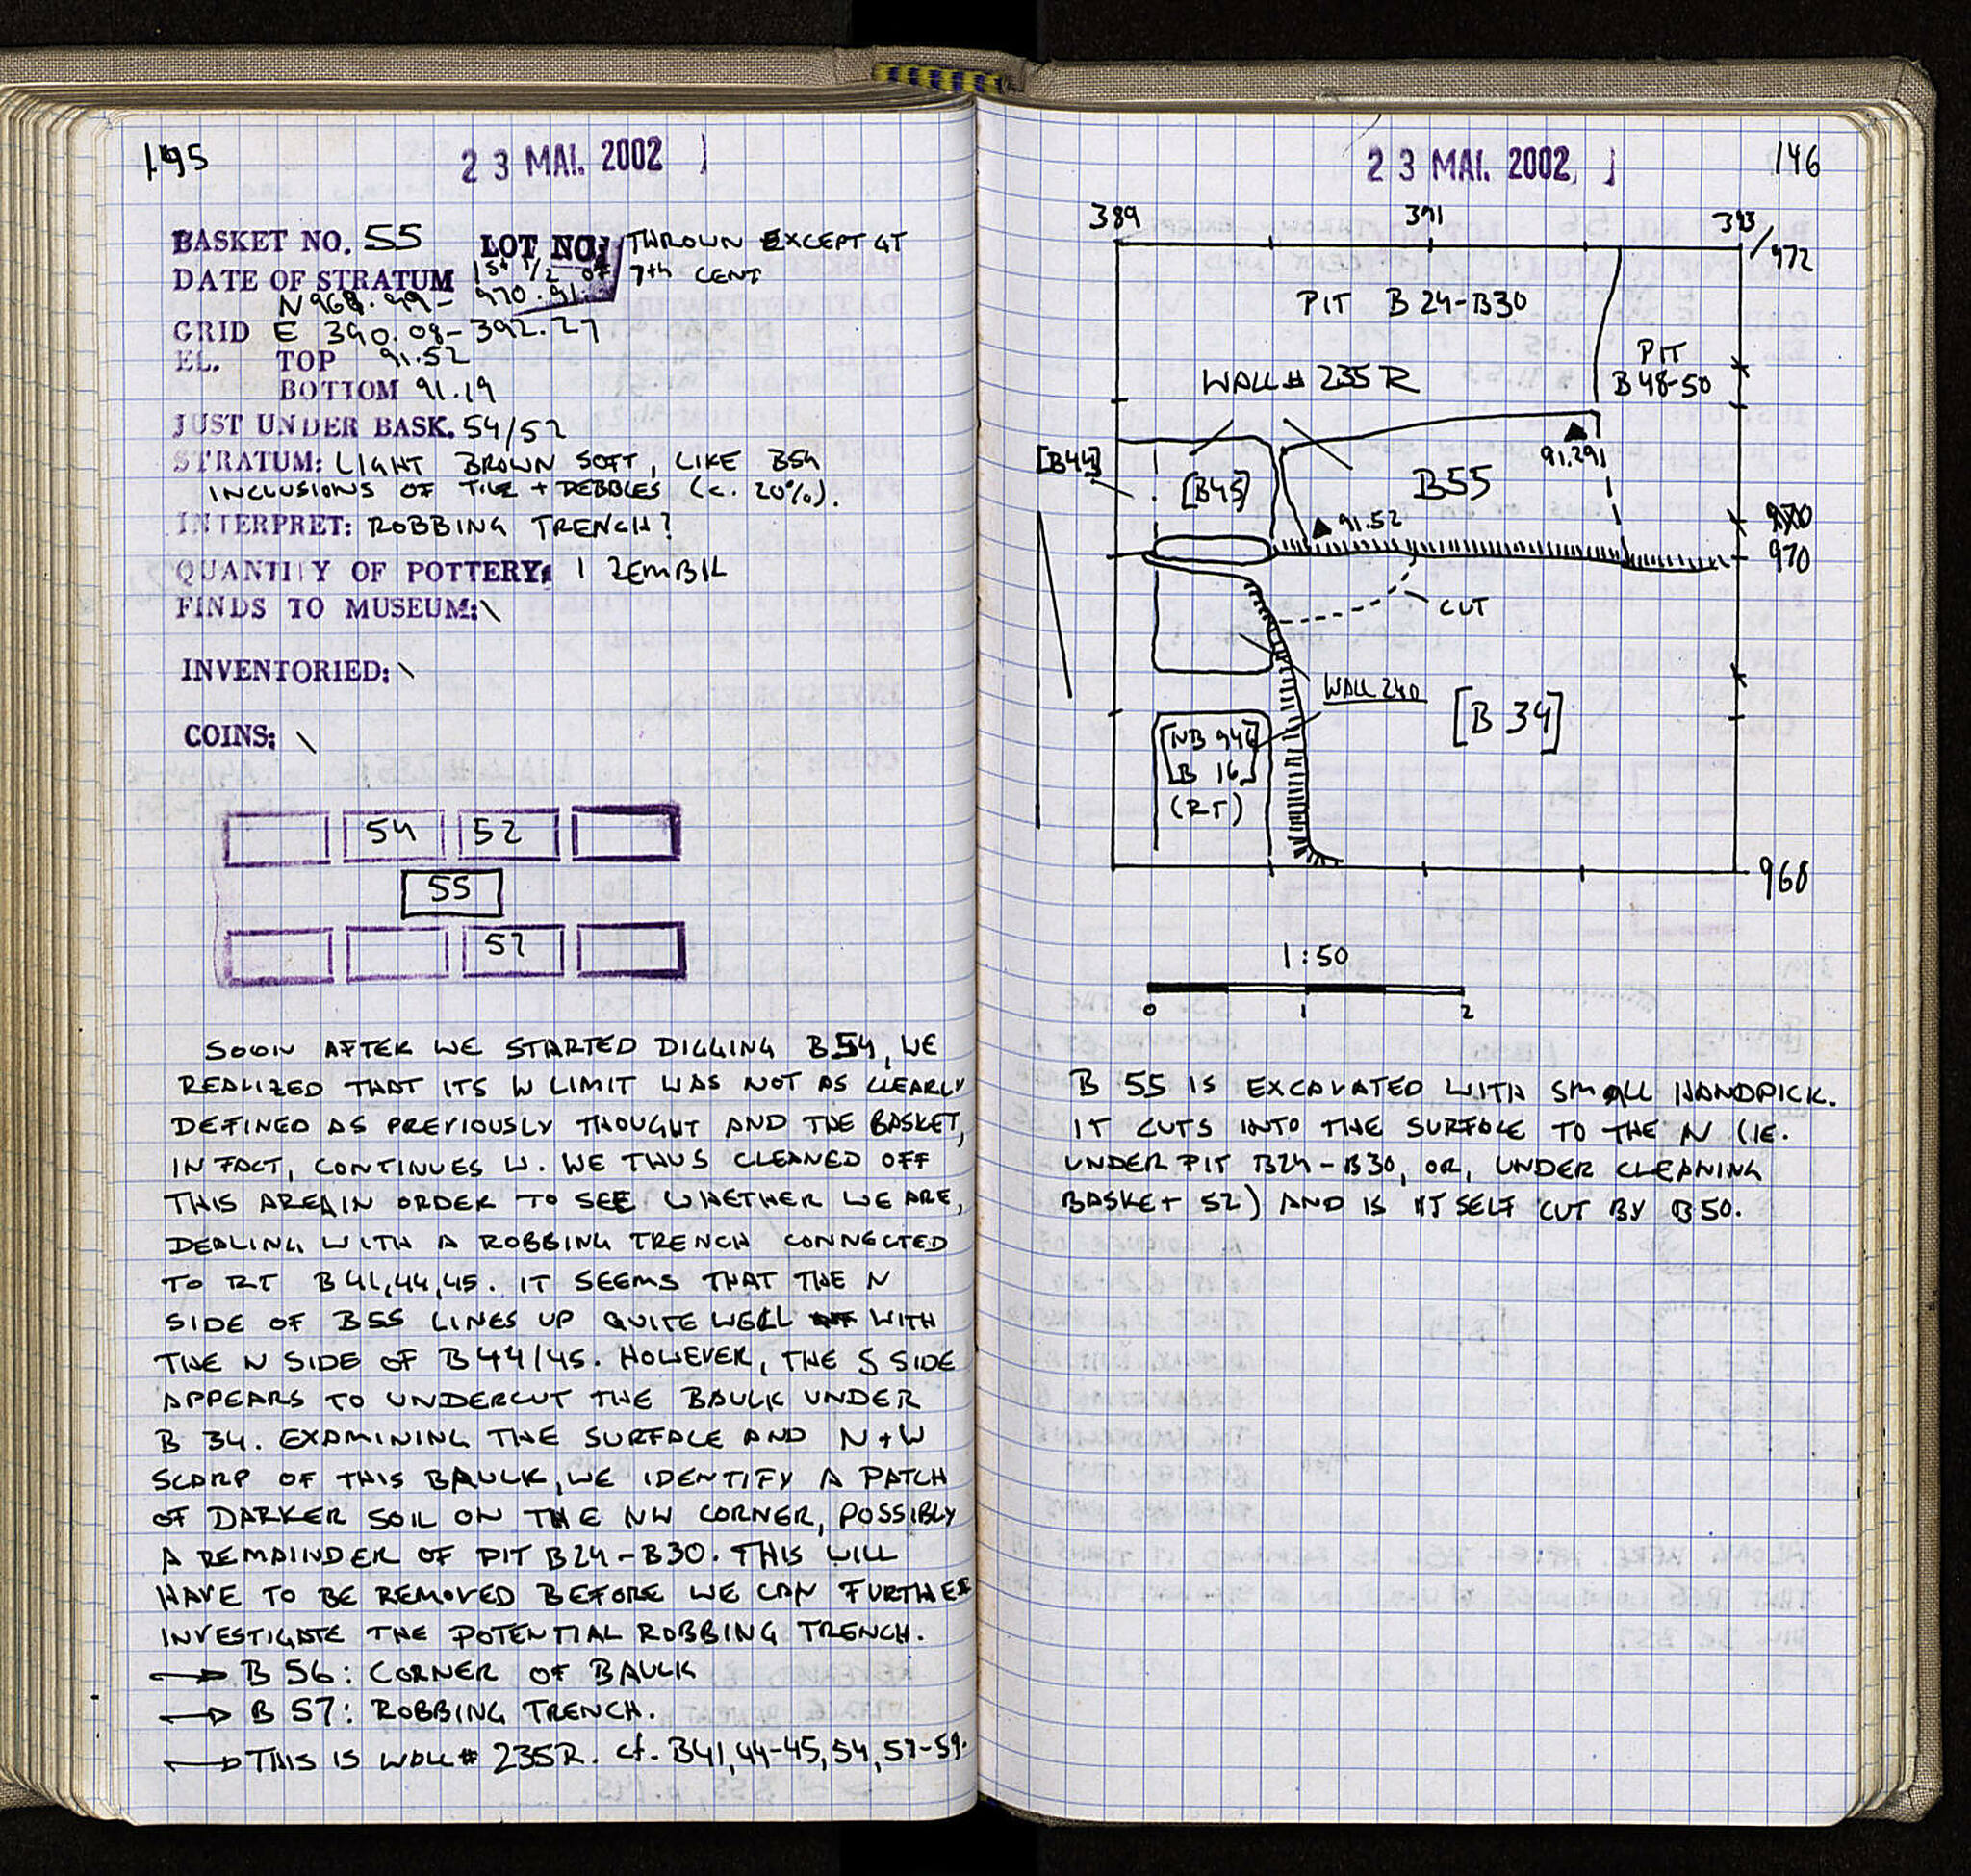 145
23 MAI. 2002
BASKET NO. 55 LOT NO. THROWN EXCEPT GT
DATE OF STRATUM 1st 1/2 OF 7th CENT
N 968.99 - 970.91
GRID E 390.08-392.27
EL. TOP 91.52
BOTTOM 91.19
JUST UNDER BASK. 54/52
STRATUM: LIGHT BROWN SOFT, LIKE B54
INCLUSIONS OF TILE + PEBBLES (c. 20%).
INTERPRET: ROBBING TRENCH?
QUANTITY OF POTTERY: 1 ZEMBIL
FINDS TO MUSEUM: \
INVENTORIED: \
COINS: \
54 52
55
57
SOON AFTER WE STARTED DIGGING B54, WE
REALIZED THAT ITS W LIMIT WAS NOT AS CLEARLY
DEFINED AS PREVIOUSLY THOUGHT AND THE BASKET,
IN FACT, CONTINUES W. WE THUS CLEANED OFF
THIS AREA IN ORDER TO SEE WHETHER WE ARE,
DEALING WITH A ROBBING TRENCH CONNECTED
TO RT B41,44,45. IT SEEMS THAT THE N
SIDE OF B55 LINES UP QUITE WELL WITH
THE N SIDE OF B44/45. HOWEVER, THE S SIDE
APPEARS TO UNDERCUT THE BAULK UNDER
B 34. EXAMINING THE SURFACE AND N + W
SCARP OF THIS BAULK, WE IDENTIFY A PATCH
OF DARKER SOIL ON THE NW CORNER, POSSIBLY
A REMAINDER OF PIT B24-B30. THIS WILL
HAVE TO BE REMOVED BEFORE WE CAN FURTHER
INVESTIGATE THE POTENTIAL ROBBING TRENCH.
→ B 56: CORNER OF BAULK
→ B 57: ROBBING TRENCH.
→ THIS IS WALL # 235R. cf. B41,44-45,54,57-59.
23 MAI. 2002
146
389 391 393/972
PIT B 24-B30
PIT
B 48-50
WALL # 235 R
[B44]
[B45]
B55
91.29
91.52
970
CUT
WALL 240
[B 34]
[NB 946
B 16]
(RT)
968
1:50
0 1 2
B 55 IS EXCAVATED WITH SMALL HANDPICK.
IT CUTS INTO THE SURFACE TO THE N (IE.
UNDER PIT B24-B30, OR, UNDER CLEANING
BASKET 52) AND IS ITSELF CUT BY B50.